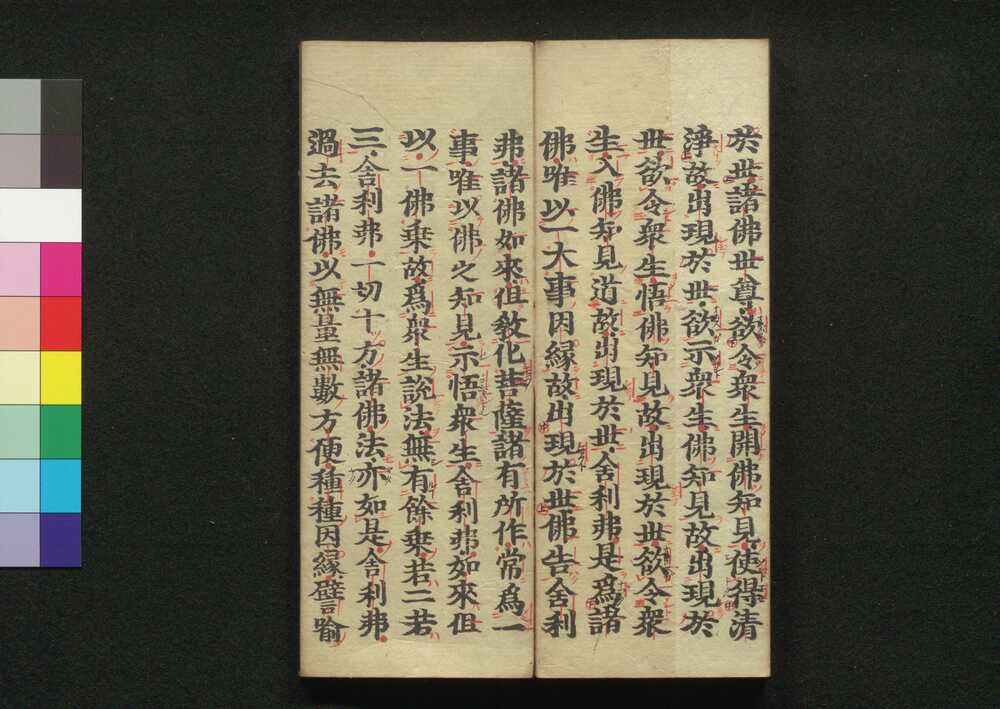 於世諸佛世尊欲令衆生開佛知見使得清
淨故出現於世欲示衆生佛知見故出現於
世欲令衆生悟佛知見故出現於世欲令衆
生入佛知見道故出現於世舍利弗是爲諸
佛唯以一大事因緣故出現於世佛告舍利
弗諸佛如來但教化菩薩諸有所作常爲一
事唯以佛之知見示悟衆生舍利弗如來但
以一佛乗故爲衆生說法無有餘乗若二若
三舍利弗一切十方諸佛法亦如是舍利弗
過去諸佛以無量無數方便種種因緣譬喻